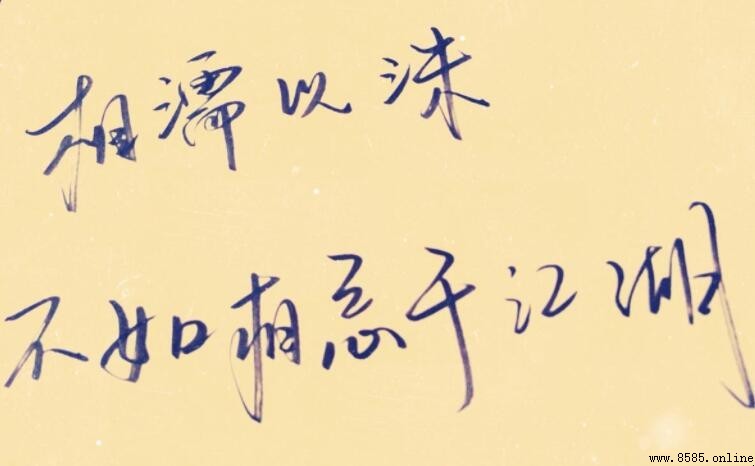 相濡以沫
不如相忘于江湖
www.8585.online